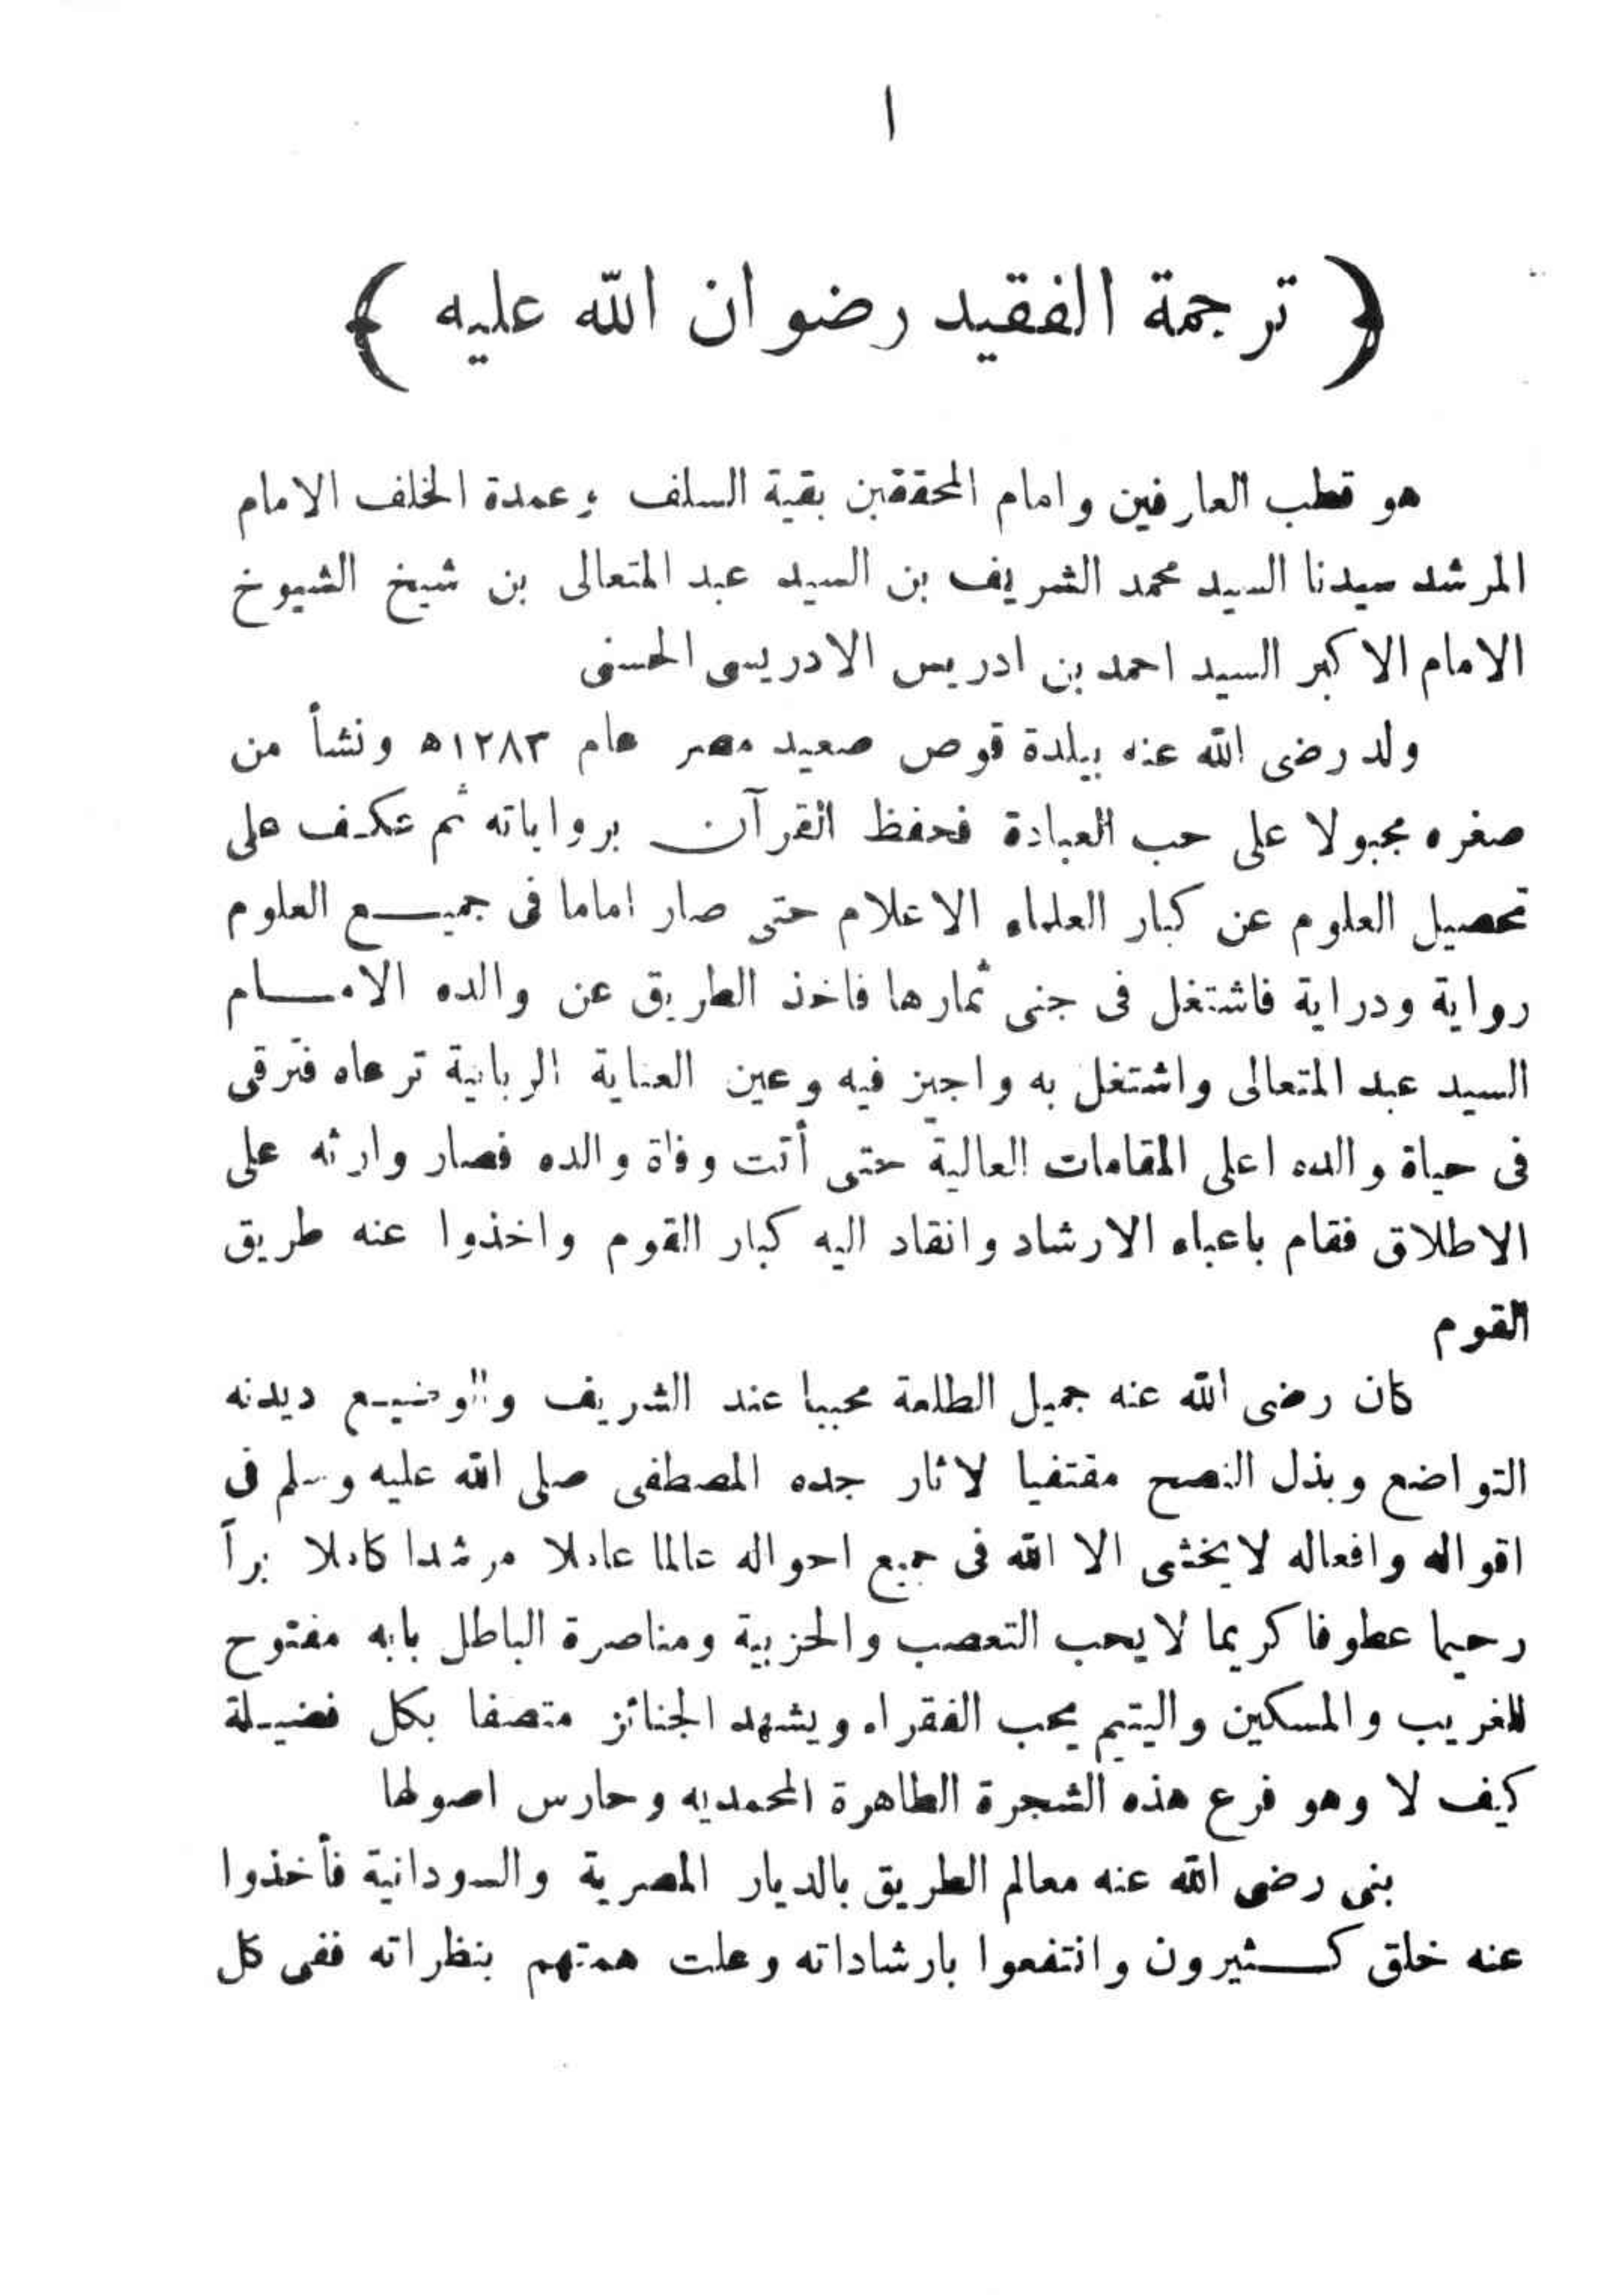 ١
﴿ ترجمة الفقيد رضوان الله عليه ﴾
هو قطب العارفين وامام المحققين بقية السلف وعمدة الخلف الامام
المرشد سيدنا السيد محمد الشريف بن السيد عبد المتعالى بن شيخ الشيوخ
الامام الاكبر السيد احمد بن ادريس الادريسى الحسنى
ولد رضى الله عنه ببلدة قوص صعيد مصر عام ١٢٨٣ه ونشأ من
صغره مجبولا على حب العبادة فحفظ القرآن برواياته ثم عكف على
تحصيل العلوم عن كبار العلماء الاعلام حتى صار اماما فى جميع العلوم
رواية ودراية فاشتغل فى جنى ثمارها فاخذ الطريق عن والده الامام
السيد عبد المتعالى واشتغل به واجيز فيه وعين العناية الربانية ترعاه فترقى
فى حياة والده اعلى المقامات العالية حتى أتت وفاة والده فصار وارثه على
الاطلاق فقام باعباء الارشاد وانقاد اليه كبار القوم واخذوا عنه طريق
القوم
كان رضى الله عنه جميل الطلعة محببا عند الشريف والوضيع ديدنه
التواضع وبذل النصح مقتفيا لاثار جده المصطفى صلى الله عليه وسلم فى
اقواله وافعاله لايخشى الا الله فى جميع احواله عالما عاملا مرشدا كاملا برأ
رحيما عطوفا كريما لايحب التعصب والحزبية ومناصرة الباطل بابه مفتوح
للغريب والمسكين واليتيم يحب الفقراء ويشهد الجنائز متصفا بكل فضيلة
كيف لا وهو فرع هذه الشجرة الطاهرة المحمديه وحارس اصولها
بنى رضى الله عنه معالم الطريق بالديار المصرية والسودانية فأخذوا
عنه خلق كثيرون وانتفعوا بارشاداته وعلت همتهم بنظراته ففى كل